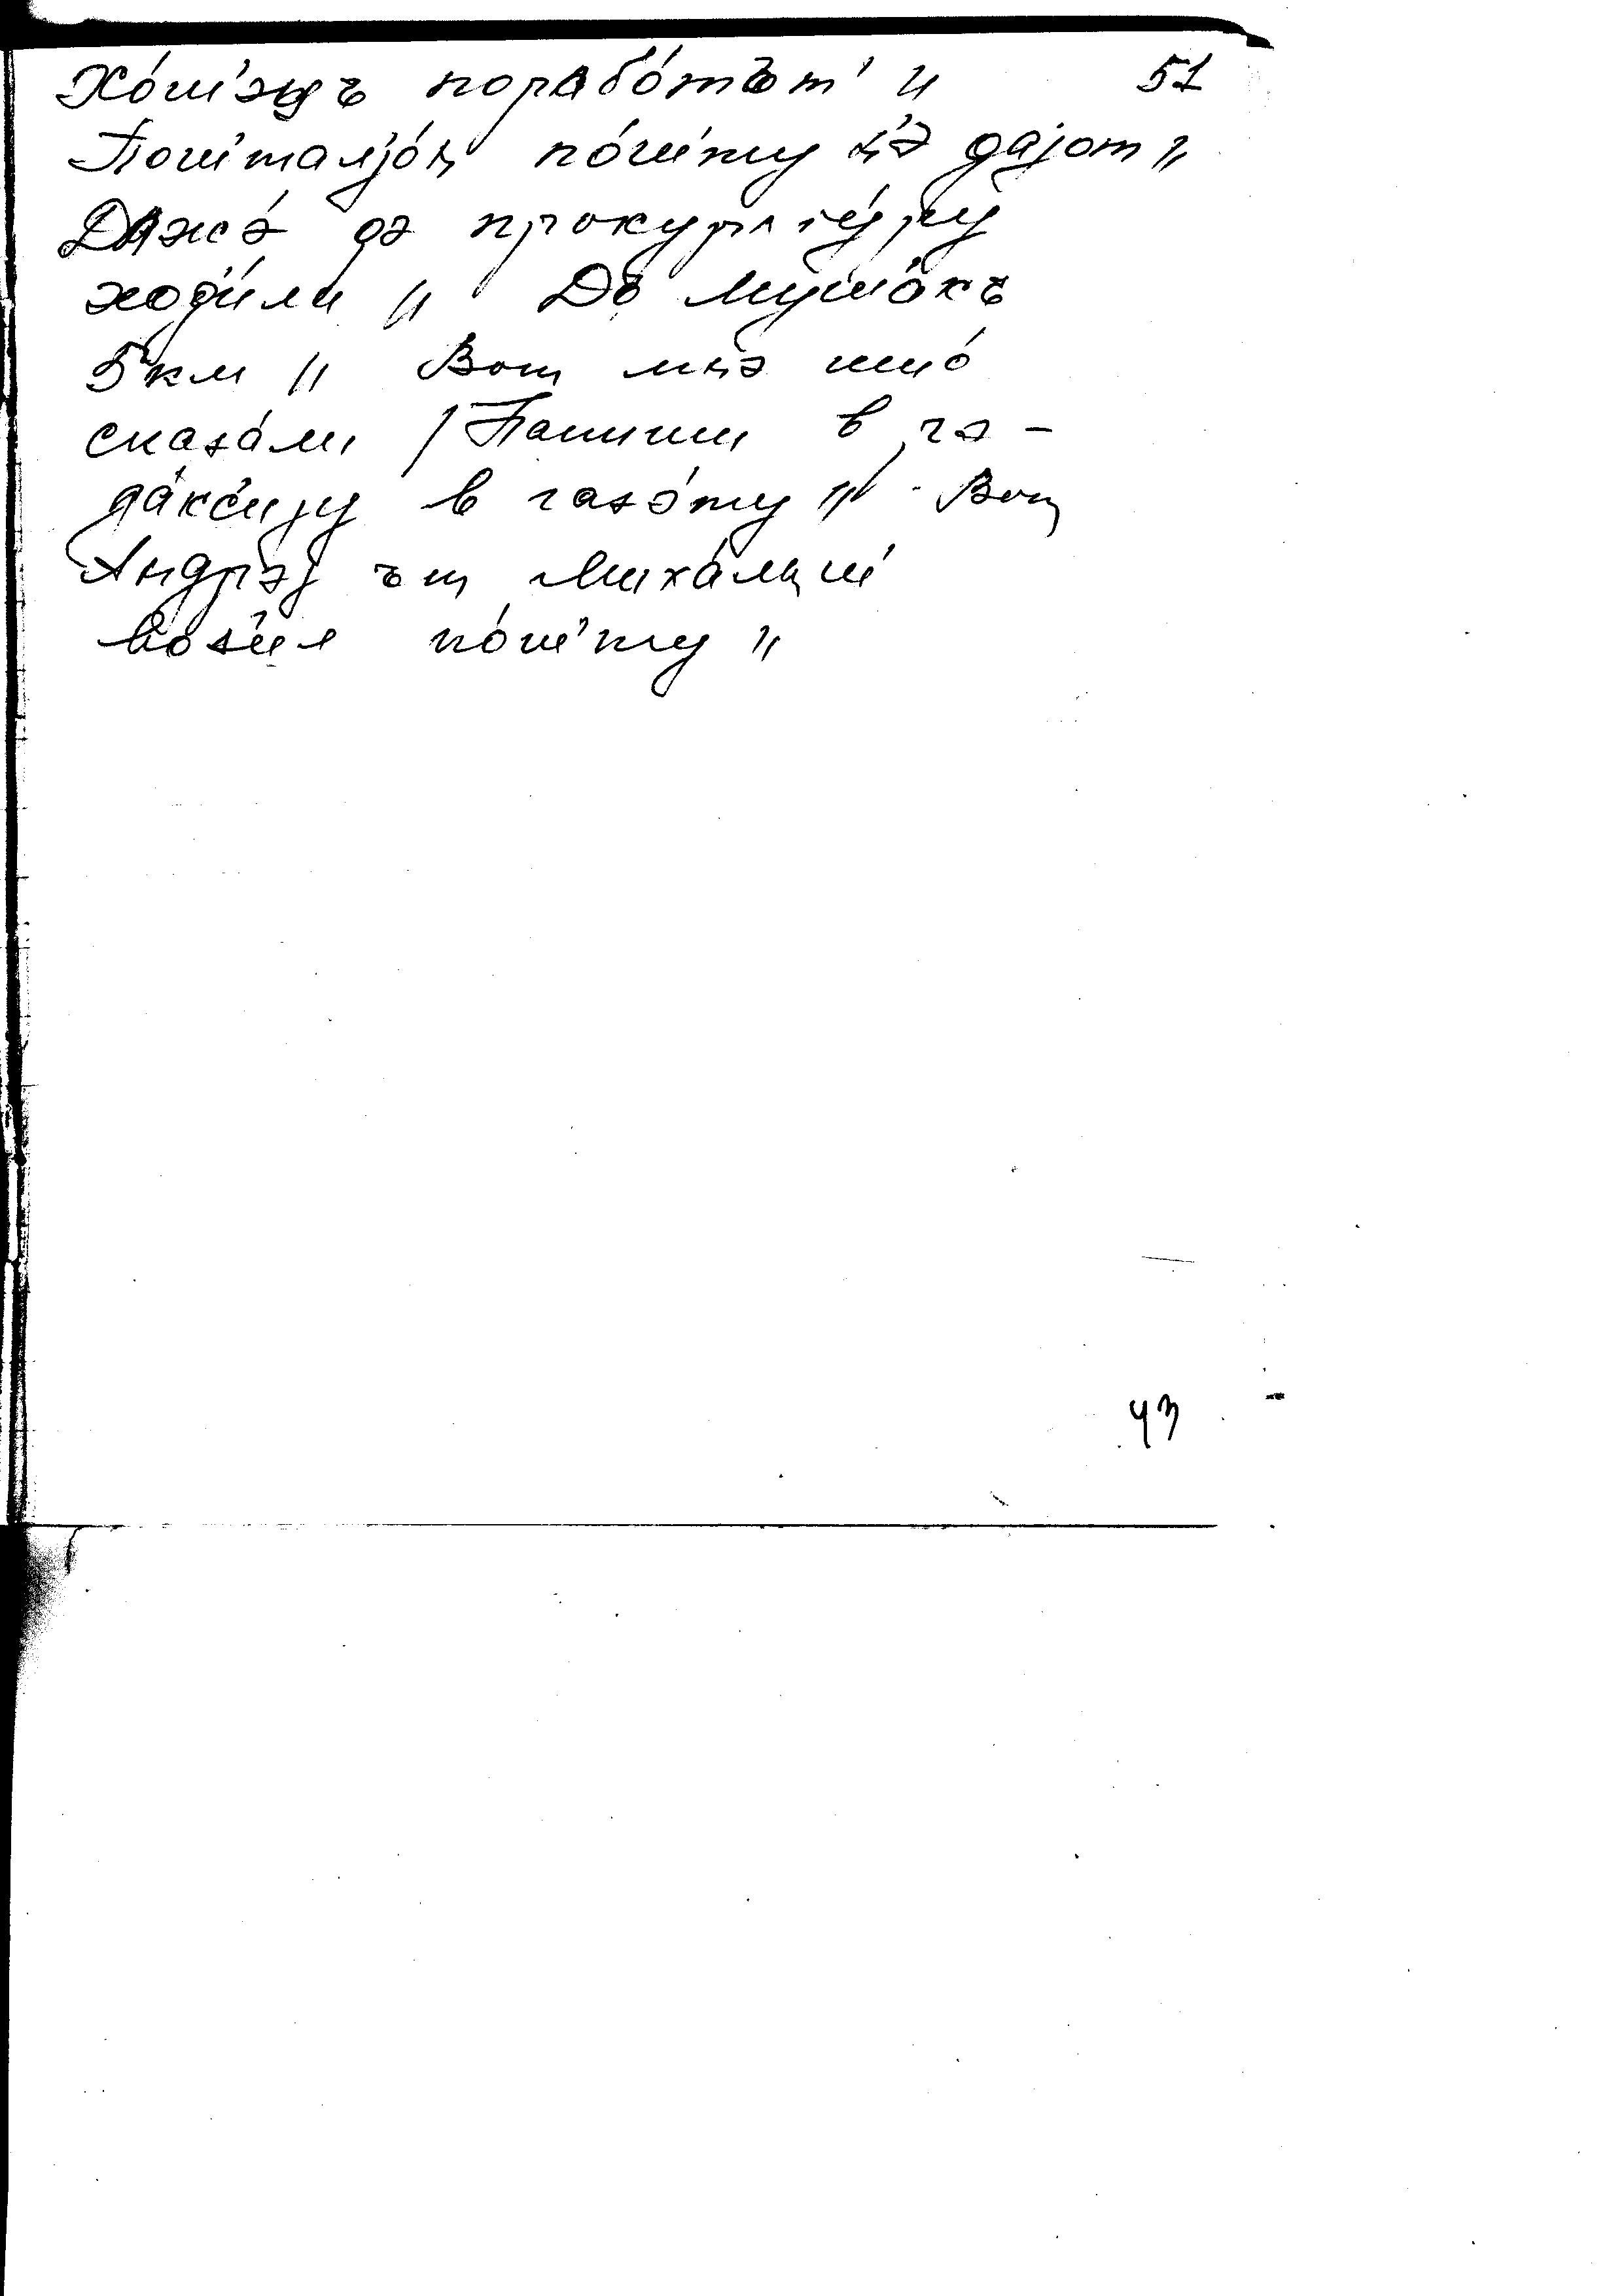 Хо́ш'эцъ порабо́тът' //		51
Пош'талjо́н по́ш'ту н'э даjот //
Дажэ́ дэ прокурату́ру
ход'и́ли // До Мушо́къ
5 км // Вот мнэ што́
сказа́ли / Папиши в рэ-
да́кс'иjу в газэ́ту // Вот
Андрэj ът Миха́лыш'
воз'и́л по́ш'ту //
43